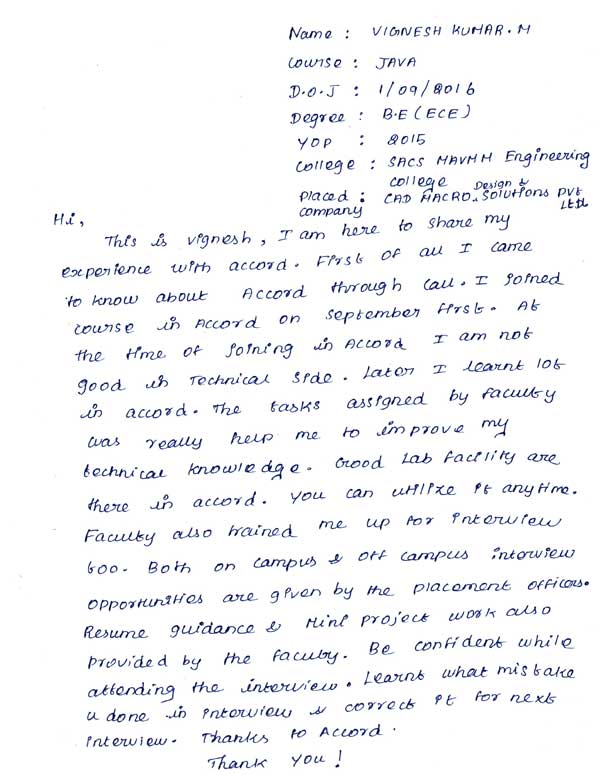 Name : VIGNESH KUMAR.M
Course : JAVA
D.O.J : 1/09/2016
Degree : B.E (ECE)
YOP : 2015
College : SACS MAVMM Engineering
college
Placed : CAD MACRO Design & Solutions PVT
company Ltd
Hi,
This is vignesh, I am here to share my
experience with accord. First of all I came
to know about Accord through call. I joined
course in Accord on September first. At
the time of joining in Accord I am not
good in Technical side. Later I learnt lot
in accord. The tasks assigned by faculty
was really help me to improve my
technical knowledge. Good Lab facility are
there in accord. You can utilize it anytime.
Faculty also trained me up for interview
too. Both on campus & off campus interview
opportunities are given by the placement officers.
Resume guidance & Mini project work also
provided by the faculty. Be confident while
attending the interview. Learnt what mistake
u done in interview & correct it for next
interview. Thanks to Accord.
Thank you!